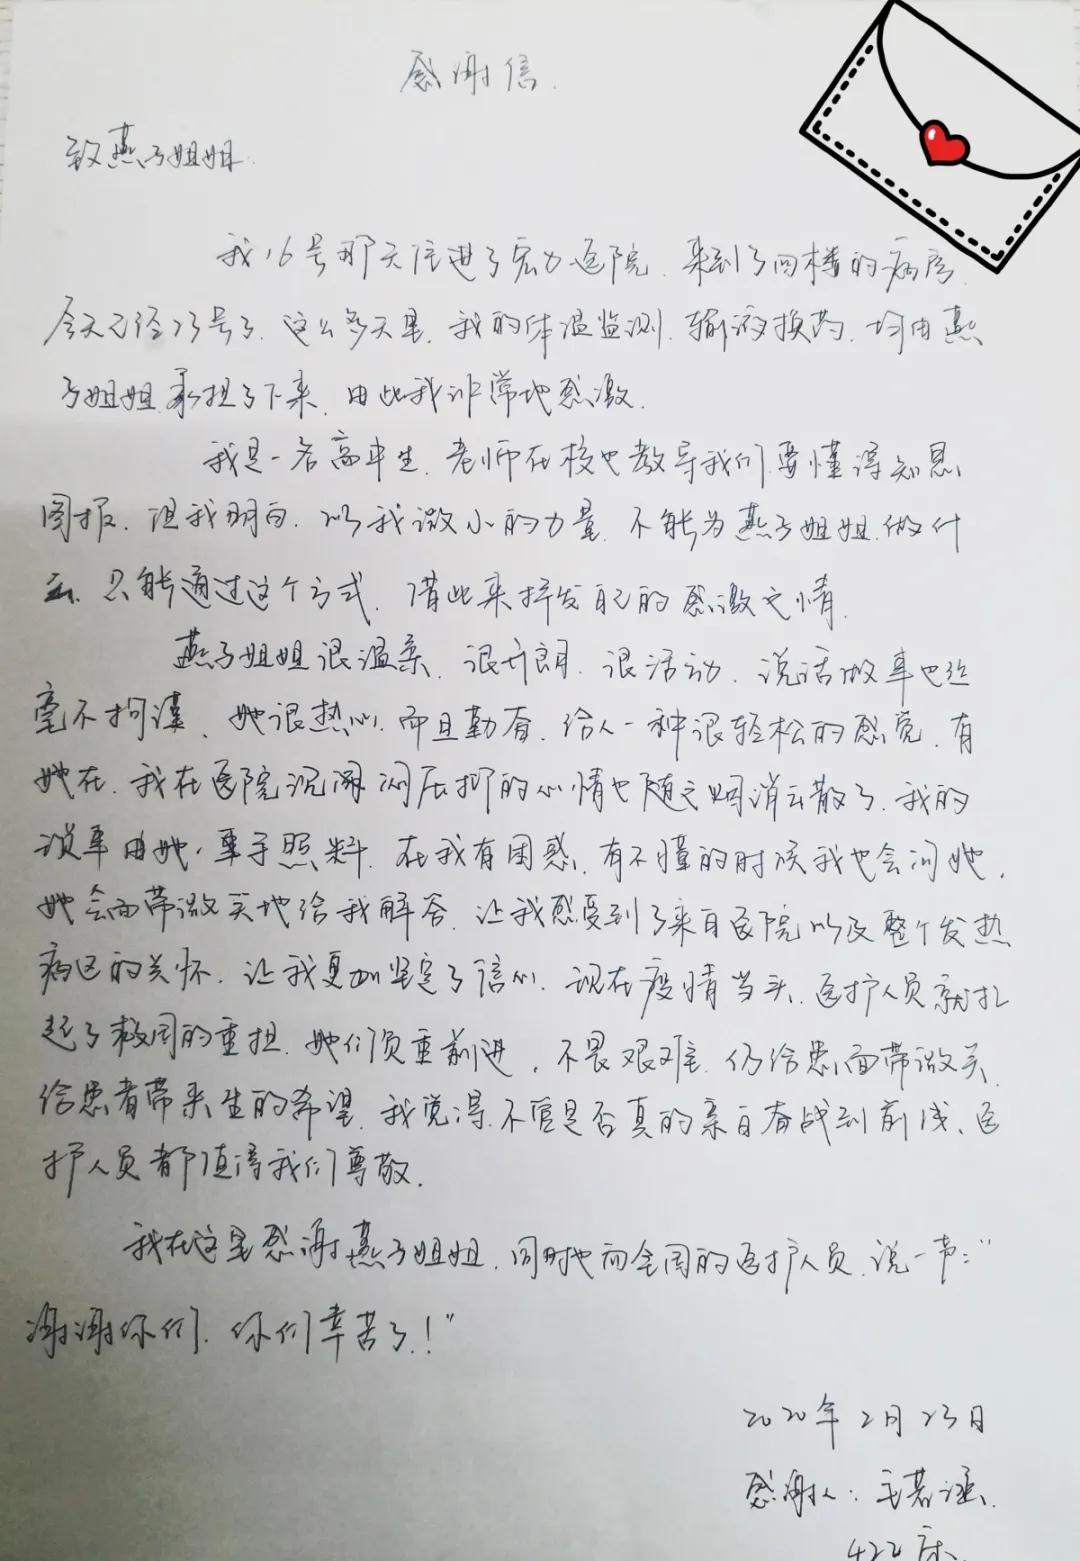 感谢信.
致燕子姐姐.
我16号那天住进了宏力医院.来到了四楼的病房.
今天已经23号了.这么多天里.我的体温监测.输液换药.均由燕
子姐姐承担了下来.由此我非常地感激.
我是一名高中生.老师在校也教导我们要懂得知恩
图报.但我明白.以我微小的力量.不能为燕子姐姐做什
么.只能通过这个方式.借此来抒发自己的感激之情.
燕子姐姐很温柔.很开朗.很活动.说话做事也丝
毫不拘谨.她很热心.而且勤奋.给人一种很轻松的感觉.有
她在.我在医院沉闷压抑的心情也随之烟消云散了.我的
琐事由她一手照料.在我有困惑.有不懂的时候我也会问她.
她会面带微笑地给我解答.让我感受到了来自医院以及整个发热
病区的关怀.让我更加坚定了信心.现在疫情当头.医护人员就扛
起了救国的重担.她们负重前进,不畏艰难.仍给患面带微笑.
给患者带来生的希望.我觉得.不管是否真的亲自奋战到前线、医
护人员都值得我们尊敬.
我在这里感谢燕子姐姐.同时也向全国的医护人员.说一声:"
谢谢你们.你们辛苦了!"
2020年2月23日
感谢人:
422床